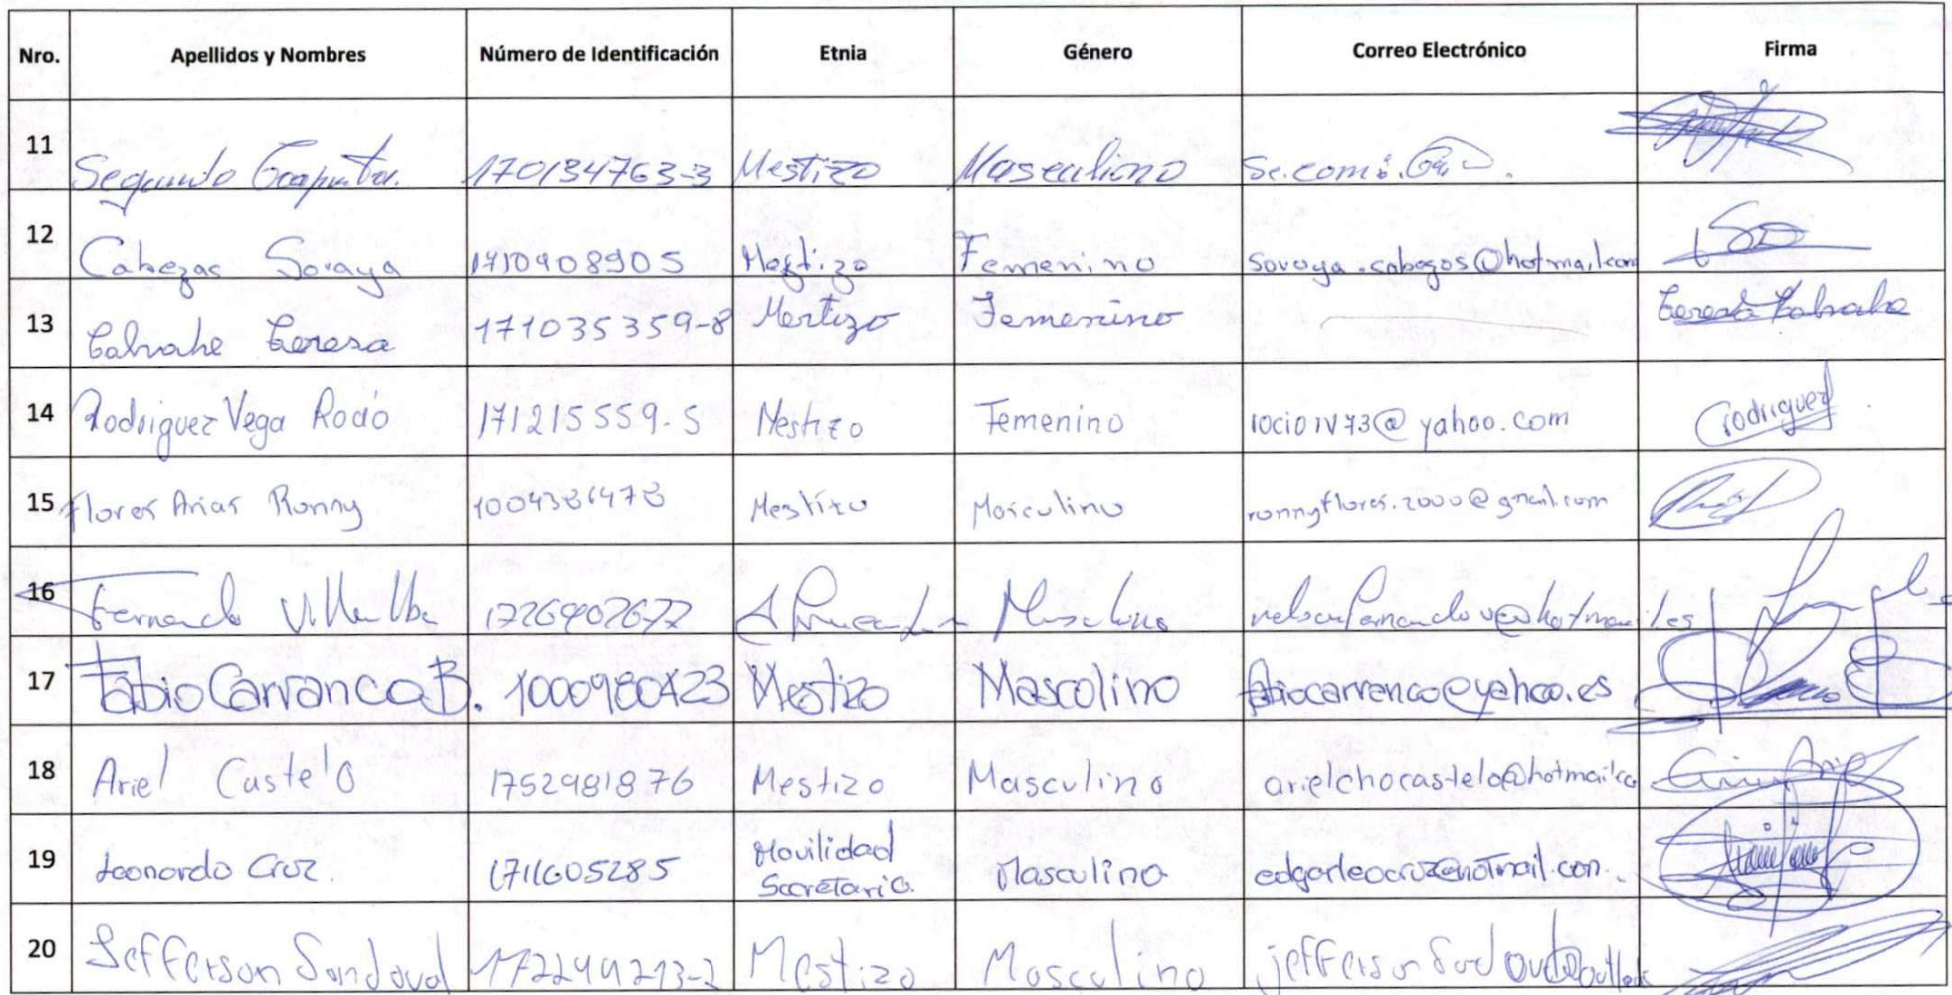 Nro. Apellidos y Nombres Número de Identificación Etnia Género Correo Electrónico Firma
11 Segundo 170134763-3 Mestizo Masculino
12 Cabezas Soraya 1710908905 Mestizo Femenino
13 Teresa 171035359-8 Mestizo Femenino Teresa
14 Rodriguez Vega Rocio 171215559-5 Mestizo Femenino rociorv73@yahoo.com Rodriguez
15 Flores Arias Ronny Mestizo Masculino ronnyflores.2000@gmail.com
16 Fernando Villalba Masculino
17 Fabio Carranco B. 1000980423 Mestizo Mascolino fabiocarranco@yahoo.es
18 Ariel Castelo 1752981876 Mestizo Masculino arielchocastelo@hotmail.co
19 Leonardo Cruz. 1711605285 Movilidad Masculino edgarleocruz@hotmail.com.
Secretario.
20 Jefferson Sandoval Mestizo Masculino